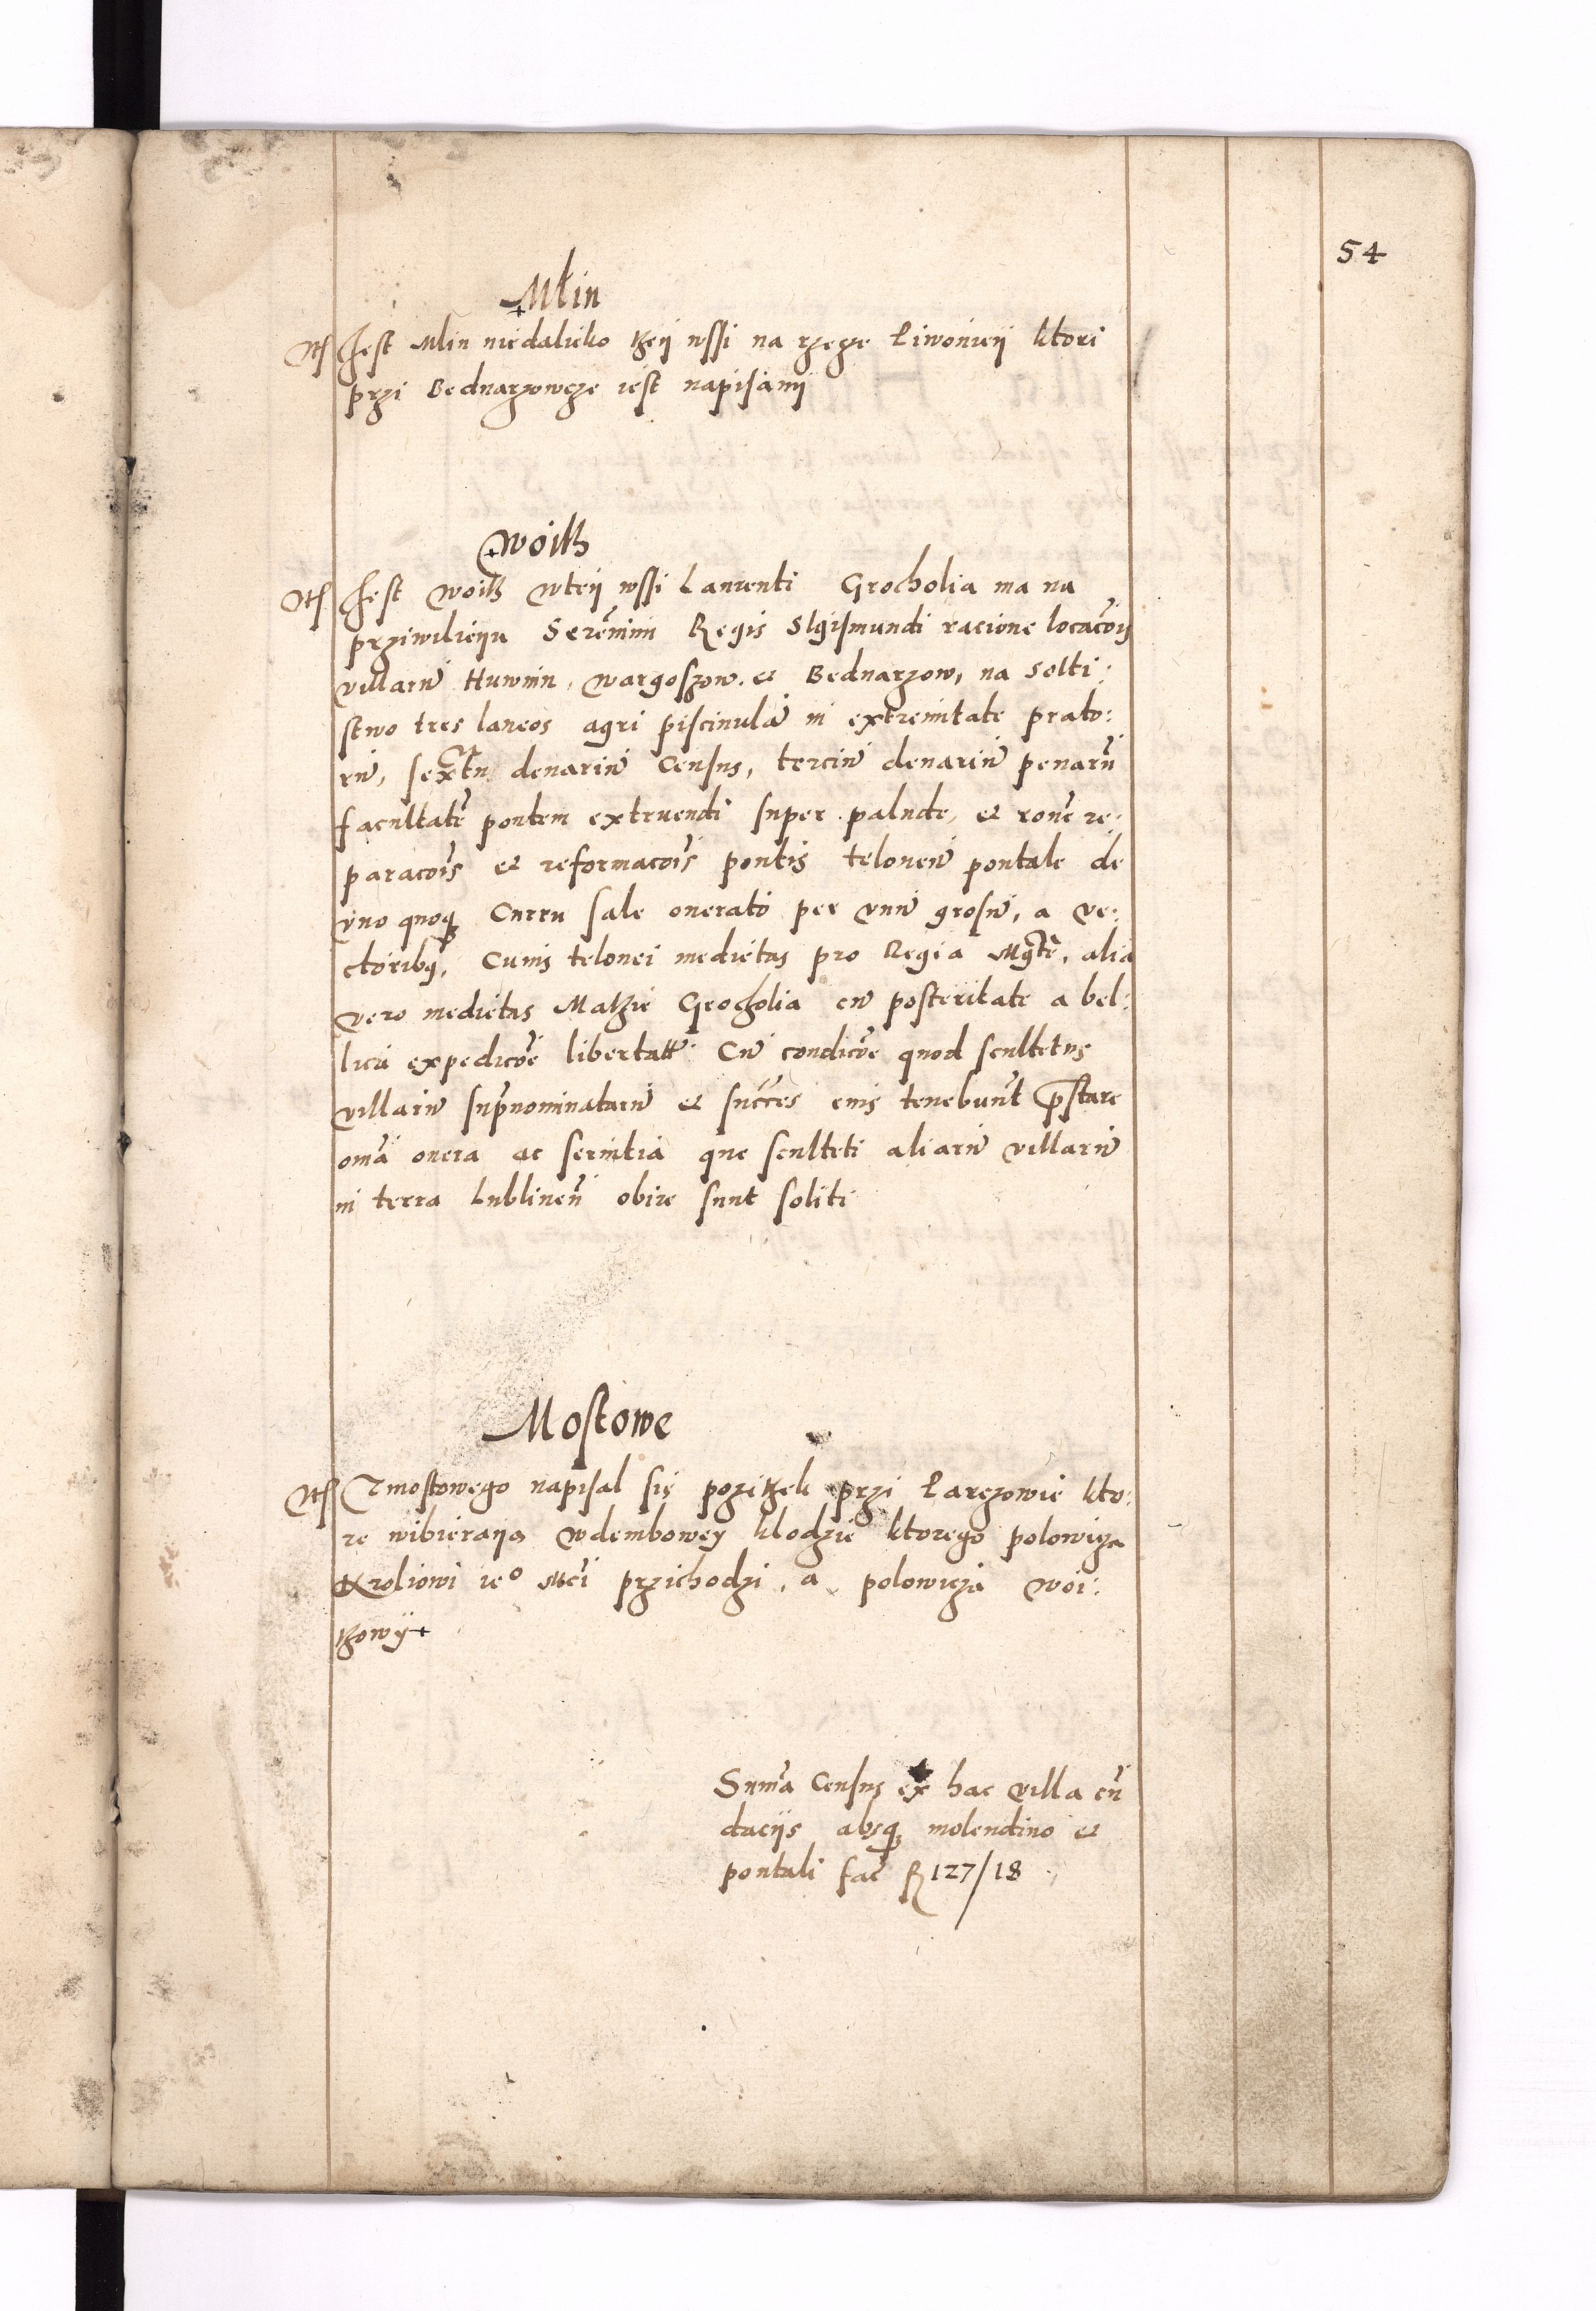 54
Mlin
Itē Jest Mlin niedalieko teÿ wssi na rzecze Liwonieÿ ktori
przi Bednarzowcze iest napisanÿ
Woith
Itē Jest Woith wteÿ wssi Laurenti Grocholia ma na
prziwilieÿu Sereñimi Regis SIgismundi racione locacõis
villarũ Huwnin, Wargoszow. et Bednarzow, na Solti:
stwo tres laneos agri piscinulã in extremitate prato:
rũ, sextũ denariũ Census, terciũ denariũ penarũ
facultatẽ pontem extruendi super palude, et rõne re:
paracõis et reformacõis pontis teloneũ pontale de
vno quoq; Curru sale onerato per vnũ grosũ, a ve:
ctoribq, Cuius telonei medietas pro Regia Mgtẽ, alia
vero medietas Mathie Grocholia cũ posteritate a bel:
lica expedicõe libertatt. Cũ condicõe quod scultetus
villarũ supnominatarũ et succes eius tenebunt pstare
omã onera ac seruitia que sculteti aliarũ villarũ
in terra Lublineñ obire sunt soliti
Mostowe
Itē Zmostowego napisal się pozithek przi Larczowie kto:
re wibieraya wdembowey klodzie ktorego polowicza
Kroliowi ieº Mći przichodzi, a polowicza woi:
thowÿ
Sum̃a Census ex hac villa cũ
dacijs absq; molendino et
pontali fac̃ fl 127/18